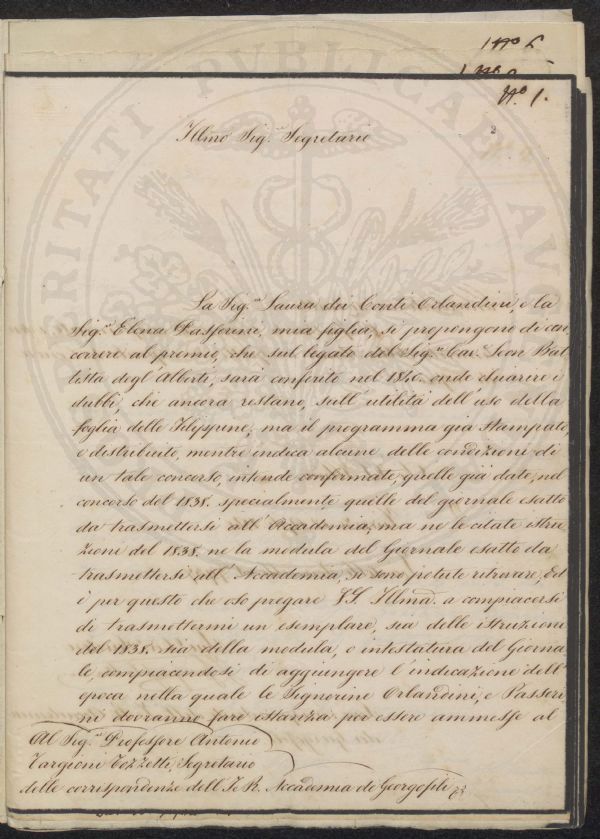 N.° 1.
Illmo Sig.r Segretario
La Sig.ra Laura dei Conti Orlandini, e la
Sig.ra Elena Passerini, mia figlia, si propongono di con
correre al premio, che sul legato del Sig.r Cav.r Leon Bat
tista degl'Alberti, sarà conferito nel 1840. onde chiarire i
dubbi, che ancora restano, sull'utilità dell'uso della
foglia delle Filippine, ma il programma già stampato,
e distribuito, mentre indica alcune delle condizioni di
un tale concorso, intende confermate, quelle già date, nel
concorso del 1838. specialmente quelle del giornale esatto
da trasmettersi all'Accademia, ma ne le citate istru
zioni del 1838. ne la modula del Giornale esatto da
trasmettersi all'Accademia, si sono potute ritrovare, Ed
è per questo che oso pregare S.S. Illma. a compiacersi
di trasmettermi un esemplare, sia delle istruzioni
del 1838. sia della modula, o intestatura del Giorna
le, compiacendosi di aggiungere l'indicazione dell'
epoca nella quale le Signorine Orlandini, e Passeri,
ni dovranno fare istanza per essere ammesse al
Al Sig.r Professore Antonio
Targioni Tozzetti, Segretario
delle corrispondenze dell'I. e R. Accademia de Georgofili